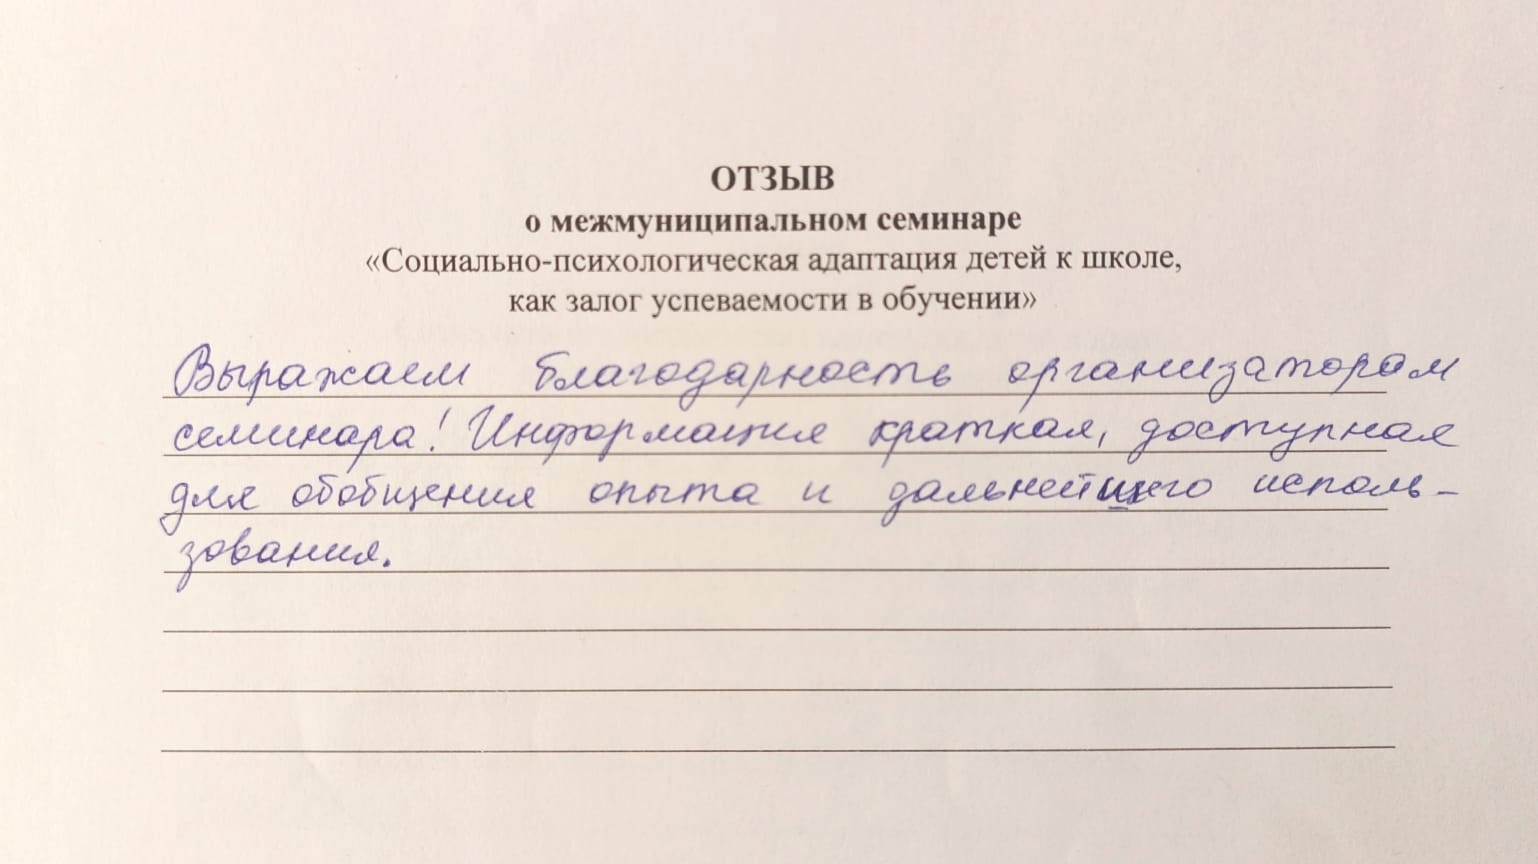 ОТЗЫВ
о межмуниципальном семинаре
«Социально-психологическая адаптация детей к школе,
как залог успеваемости в обучении»
Выражаем благодарность организаторам
семинара! Информация краткая, доступная
для обобщения опыта и дальнейшего исполь-
зования.